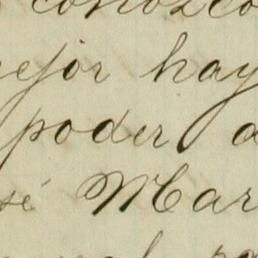 conozco
mejor hay
poder a
sé Mar